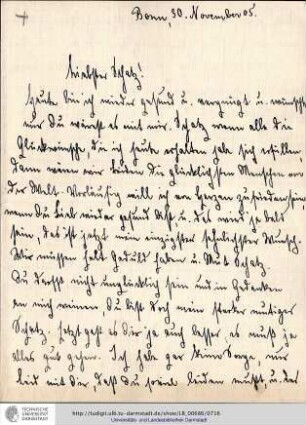 Bonn, 30. November 05.
Liebster Schatz!
Heute bin ich wieder gesund u. vergnügt u. wünschte
nur Du wärest es mit mir. Schatz wenn alle die
Glückwünsche, die ich heute erhalten habe sich erfüllen
dann wären wir beiden die glücklichsten Menschen von
der Welt. Vorläufig will ich von Herzen zufrieden sein,
wenn Du Lieb wieder gesund bist u. das wird ja bald
sein, das ist jetzt mein einzigster sehnlichster Wunsch.
Wir müssen halt Geduld haben u. Mut Schatz
Du darfst nicht unglücklich sein und in Gedanken
an mich weinen. Du bist doch mein starker mutiger
Schatz. Jetzt geht es Dir ja auch besser, es muß ja
alles gut gehen. Ich habe gar keine Sorge, nur
leid mit Dir, daß Du soviel leiden mußt, u. das
TECHNISCHE UNIVERSITÄT DARMSTADT
http://tudigit.ulb.tu-darmstadt.de/show/LB_00686/0716
Universitäts- und Landesbibliothek Darmstadt